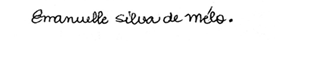 Emanuelle Silva de Mélo.